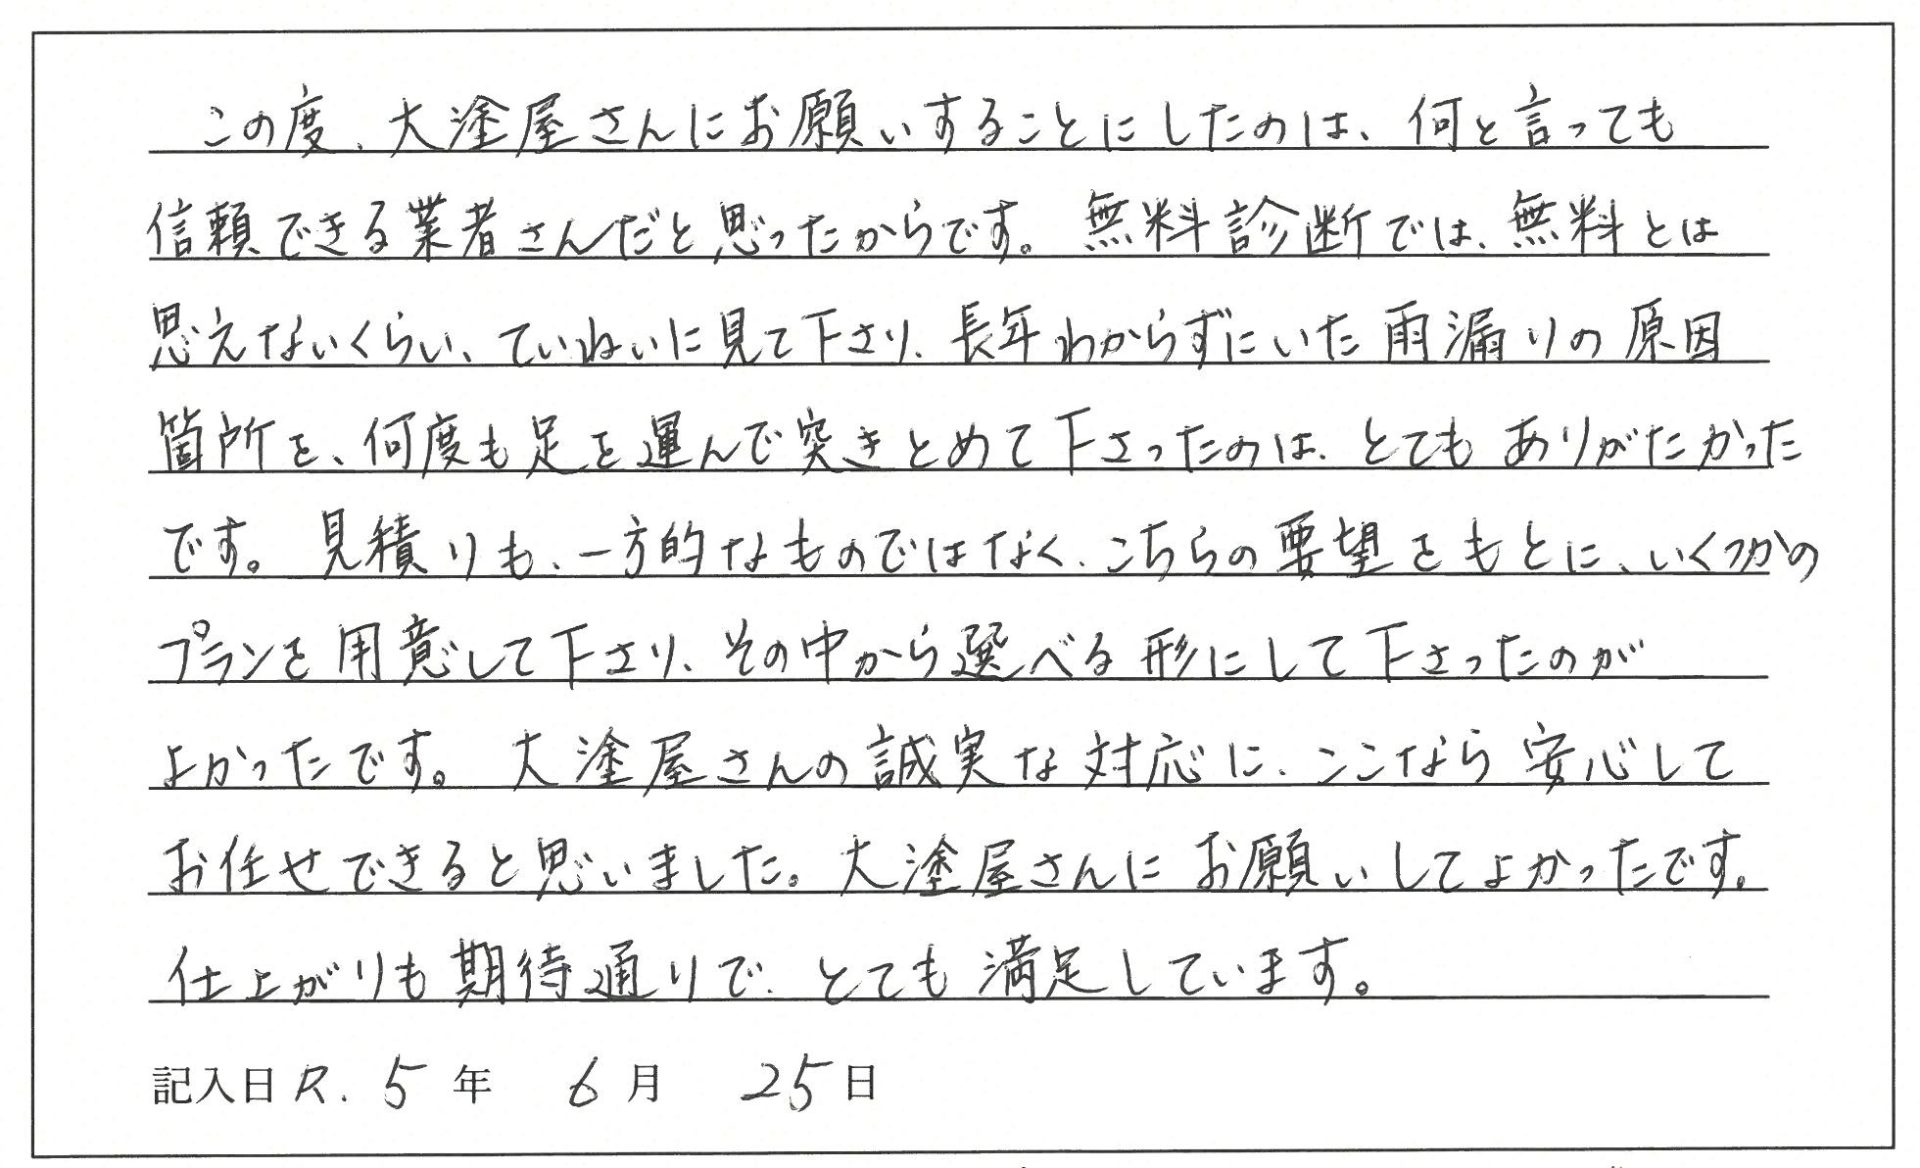 この度、大塗屋さんにお願いすることにしたのは、何と言っても
信頼できる業者さんだと思ったからです。無料診断では、無料とは
思えないくらい、ていねいに見て下さり、長年わからずにいた雨漏りの原因
箇所を、何度も足を運んで突きとめて下さったのは、とてもありがたかった
です。見積りも、一方的なものではなく、こちらの要望をもとに、いくつかの
プランを用意して下さり、その中から選べる形にして下さったのが
よかったです。大塗屋さんの誠実な対応に、ここなら安心して
お任せできると思いました。大塗屋さんにお願いしてよかったです。
仕上がりも期待通りで、とても満足しています。
記入日 R. 5 年 6 月 25 日